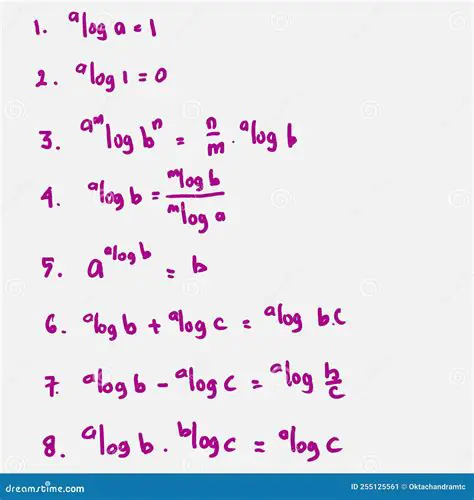 1. ᵃlog a = 1
2. ᵃlog 1 = 0
3. ᵃᵐlog bⁿ = n/m . ᵃlog b
4. ᵃlog b = ᵐlog b / ᵐlog a
5. a^(ᵃlog b) = b
6. ᵃlog b + ᵃlog c = ᵃlog b.c
7. ᵃlog b - ᵃlog c = ᵃlog b/c
8. ᵃlog b . ᵇlog c = ᵃlog c
dreamstime.com
ID 255125561 © Oktachandramtc